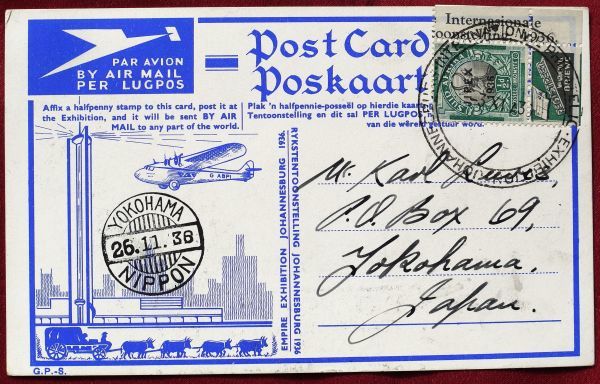 PAR AVION
BY AIR MAIL
PER LUGPOS
Post Card
Poskaart
Internasionale
Affix a halfpenny stamp to this card, post it at
the Exhibition, and it will be sent BY AIR
MAIL to any part of the world.
Plak 'n halfpennie-posseël op hierdie kaart
Tentoonstelling en dit sal PER LUGPOS
van die wêreld gestuur word.
G ABPI
YOKOHAMA
26.11.36
NIPPON
EMPIRE EXHIBITION JOHANNESBURG 1936.
RYKSTENTOONSTELLING JOHANNESBURG 1936
Mr. Karl
P.O. Box 69,
Yokohama.
Japan.
G.P.-S.